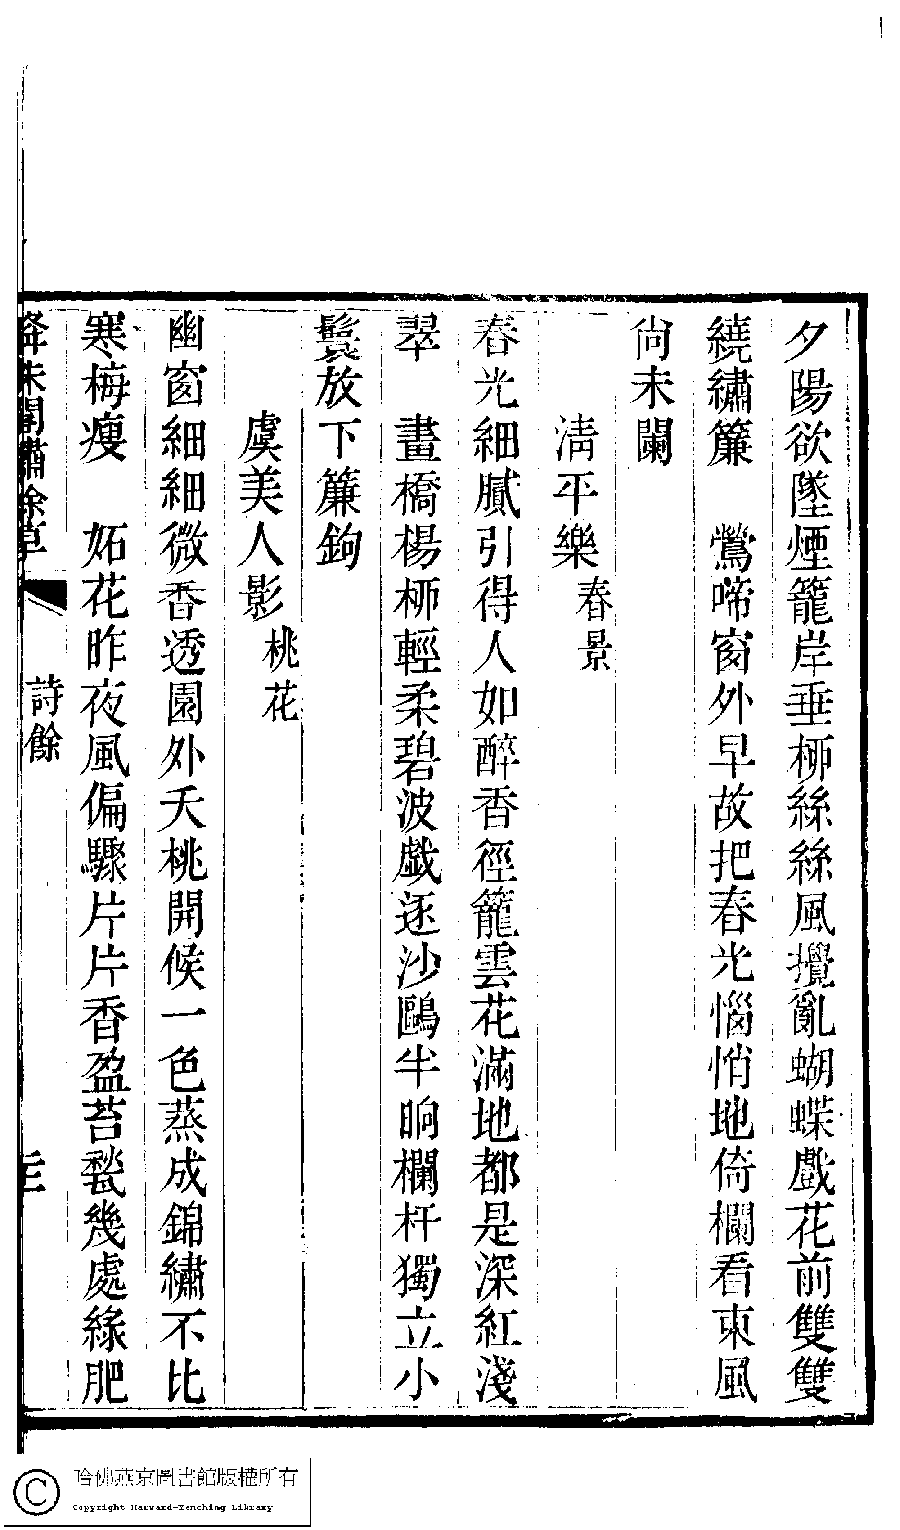 夕陽欲墜煙籠岸垂柳絲絲風攪亂蝴蝶戲花前雙雙
繞繡簾　鶯啼窗外早故把春光惱悄地倚欄看東風
尙未闌
淸平樂 春景
春光細膩引得人如醉香徑籠雲花滿地都是深紅淺
翠　畫橋楊柳輕柔碧波戯逐沙鷗半晌欄杆獨立小
鬟放下簾鉤
虞美人影 桃花
幽窗細細微香透園外夭桃開候一色蒸成錦繡不比
寒梅瘦　妬花昨夜風偏驟片片香盈苔甃幾處綠肥
絳朱閣繡餘草　詩餘　三
哈佛燕京圖書館版權所有
Copyright Harvard-Yenching Library